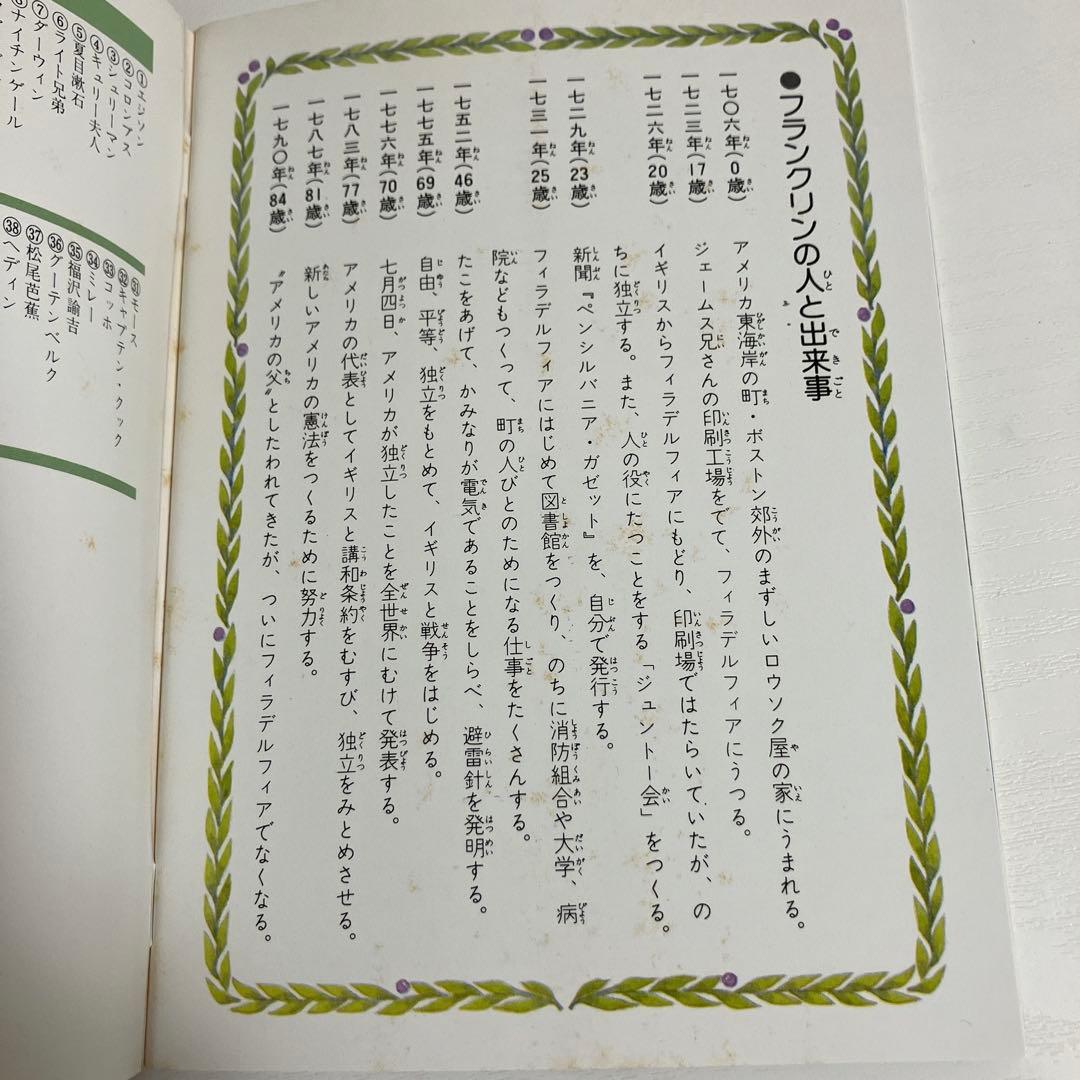 ●フランクリンの人と出来事
一七〇六年(0歳) アメリカ東海岸の町・ボストン郊外のまずしいロウソク屋の家にうまれる。
一七二三年(17歳) ジェームス兄さんの印刷工場をでて、フィラデルフィアにうつる。
一七二六年(20歳) イギリスからフィラデルフィアにもどり、印刷場ではたらいていたが、の
ちに独立する。また、人の役にたつことをする「ジュントー会」をつくる。
一七二九年(23歳) 新聞『ペンシルバニア・ガゼット』を、自分で発行する。
一七三一年(25歳) フィラデルフィアにはじめて図書館をつくり、のちに消防組合や大学、病
院などもつくって、町の人びとのためになる仕事をたくさんする。
一七五二年(46歳) たこをあげて、かみなりが電気であることをしらべ、避雷針を発明する。
一七七五年(69歳) 自由、平等、独立をもとめて、イギリスと戦争をはじめる。
一七七六年(70歳) 七月四日、アメリカが独立したことを全世界にむけて発表する。
一七八三年(77歳) アメリカの代表としてイギリスと講和条約をむすび、独立をみとめさせる。
一七八七年(81歳) 新しいアメリカの憲法をつくるために努力する。
一七九〇年(84歳) “アメリカの父”としたわれてきたが、ついにフィラデルフィアでなくなる。
①エジソン
②コロンブス
③シュリーマン
④キュリー夫人
⑤夏目漱石
⑥ライト兄弟
⑦ダーウィン
⑧ナイチンゲール
㉛モース
㉜キャプテン・クック
㉝コッホ
㉞ミレー
㉟福沢諭吉
㊱グーテンベルク
㊲松尾芭蕉
㊳ヘディン